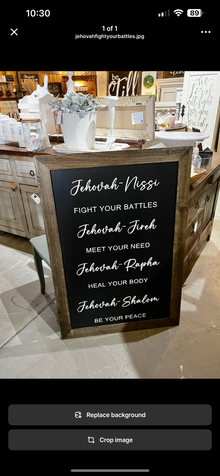 10:30
89
1 of 1
jehovahfightyourbattles.jpg
Jehovah-Nissi
FIGHT YOUR BATTLES
Jehovah-Jireh
MEET YOUR NEED
Jehovah-Rapha
HEAL YOUR BODY
Jehovah-Shalom
BE YOUR PEACE
Replace background
Crop image